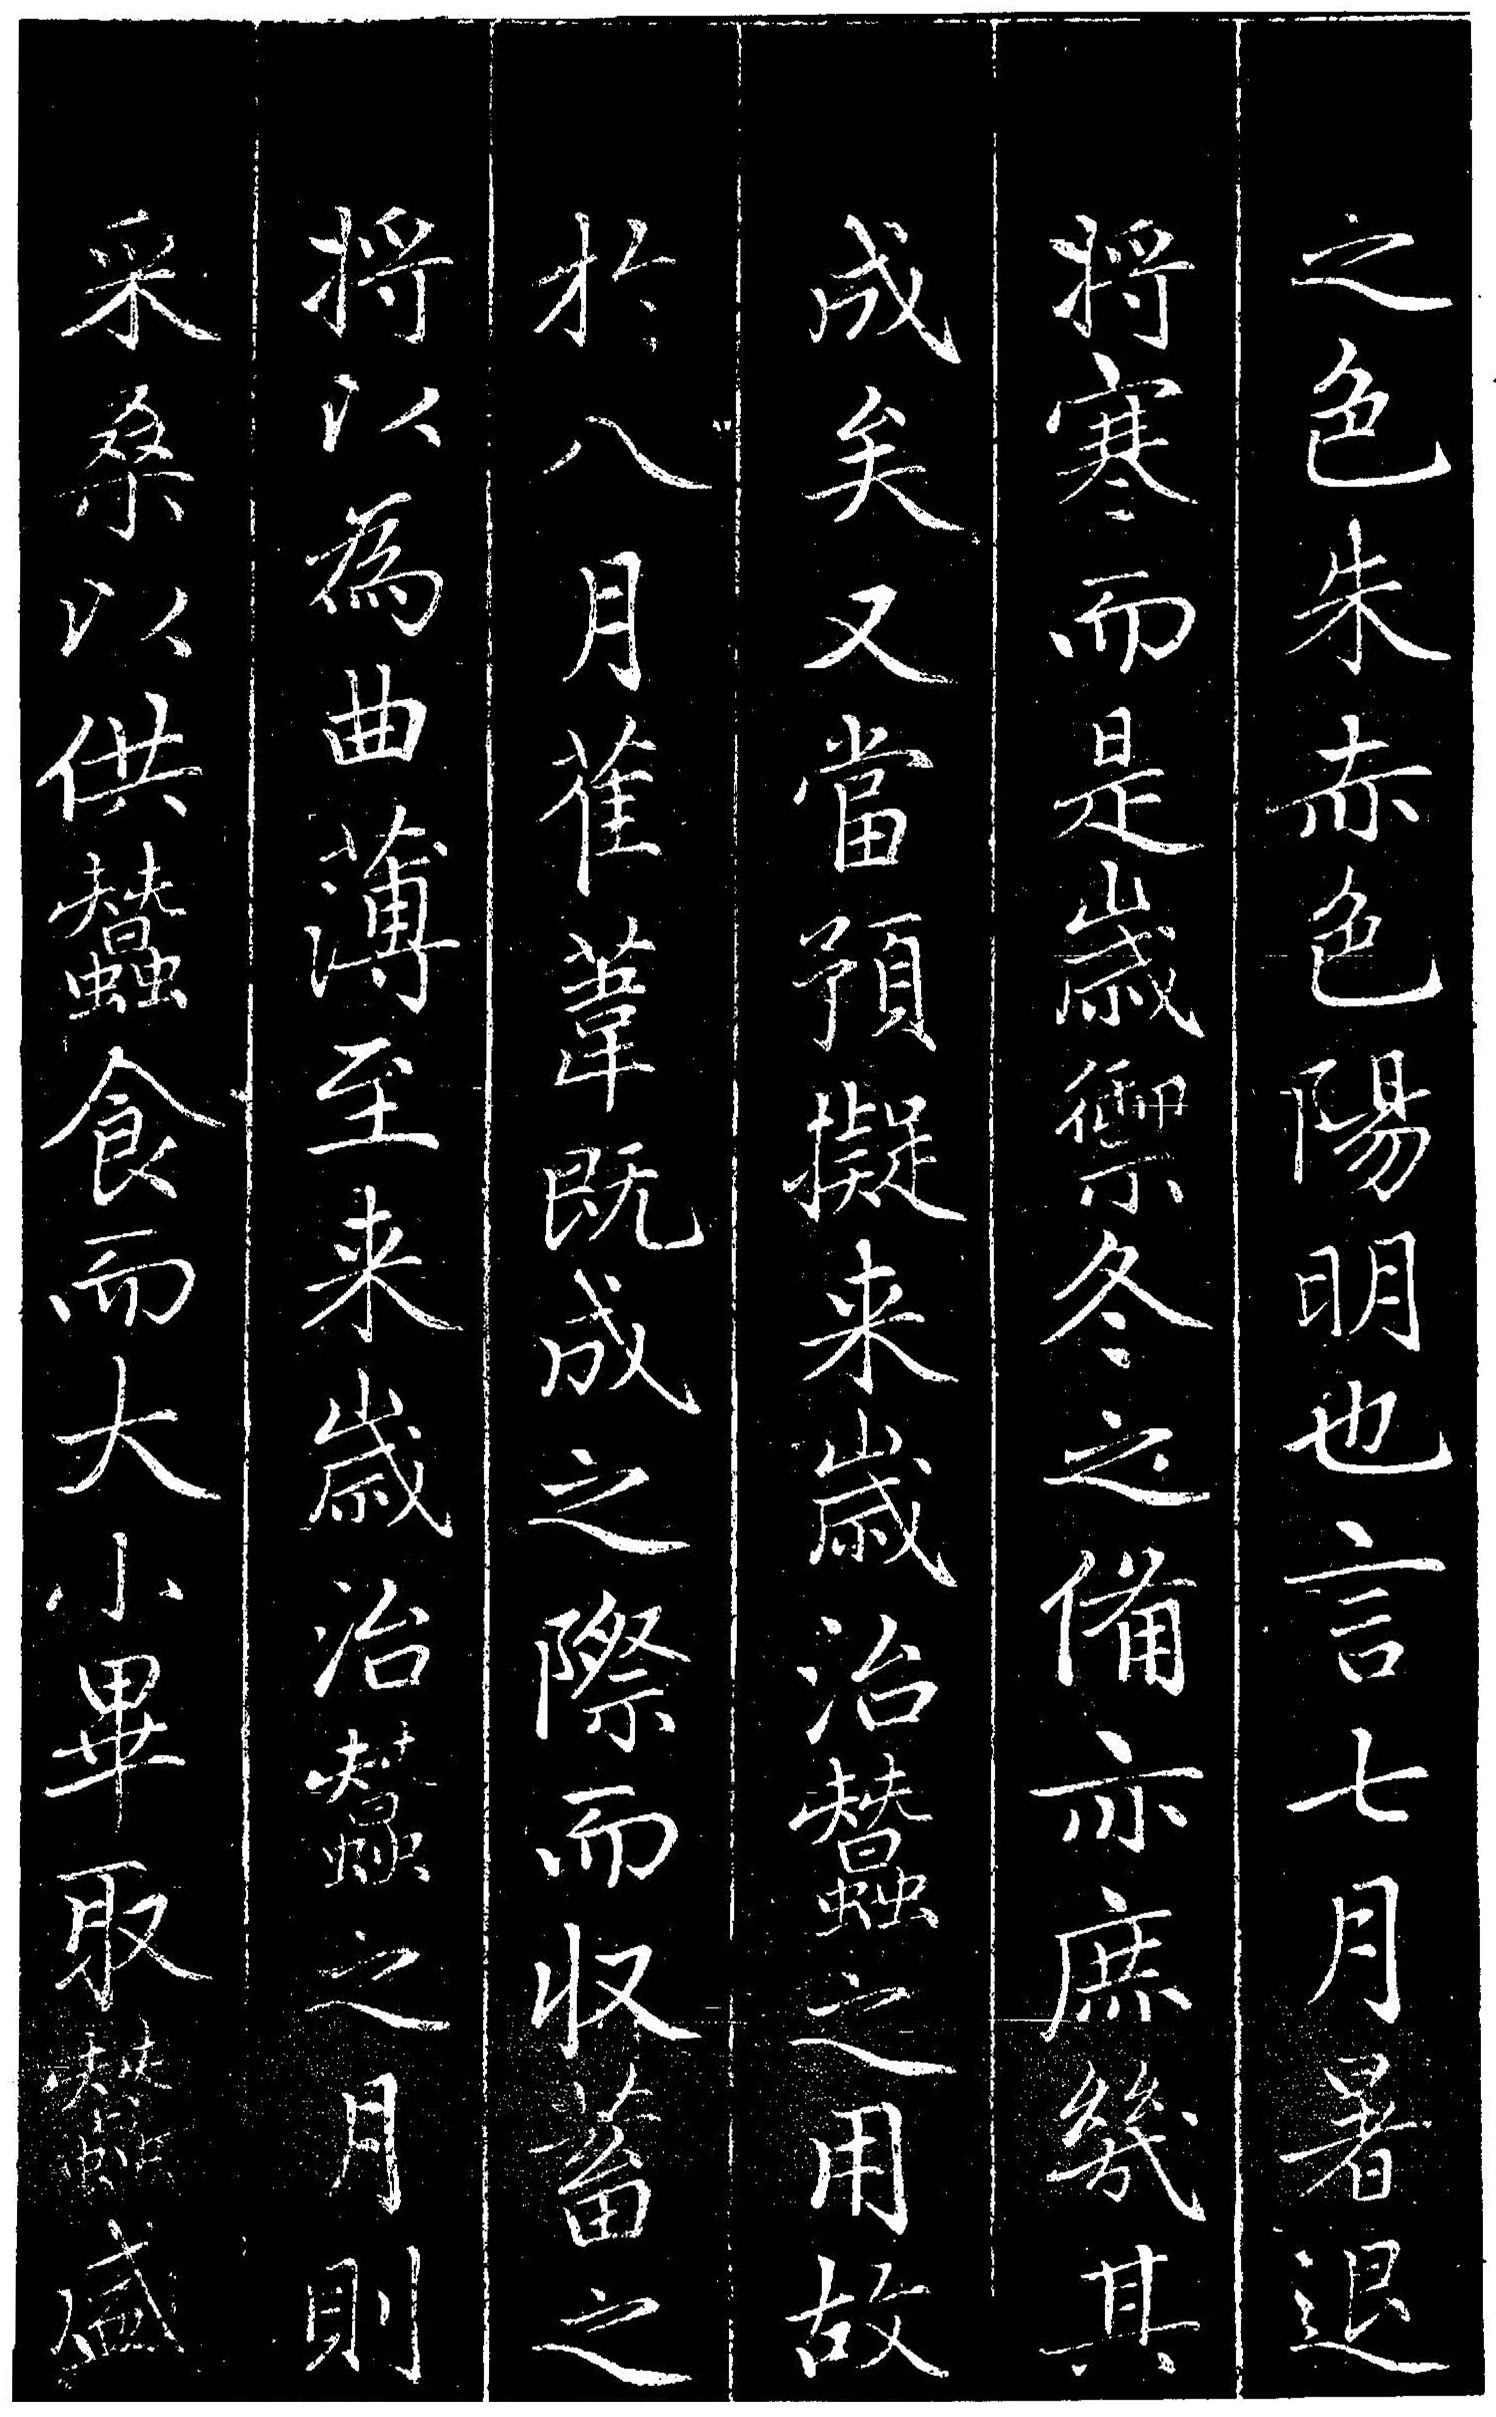 之色朱赤色陽明也言七月暑退
将寒而是歳禦冬之備亦庶幾其
成矣又當預擬来歳治蠶之用故
於八月萑葦既成之際而収蓄之
将以為曲薄至来歳治蠶之月則
采桑以供蠶食而大小畢取蠶盛